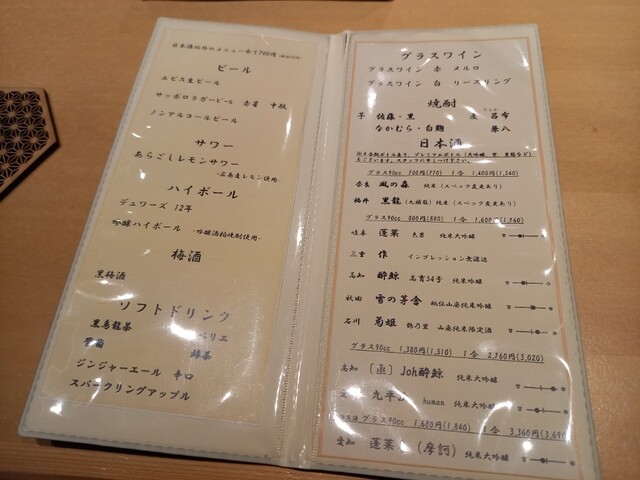 日本酒以外のメニュー全て700円
ビール
エビス生ビール
サッポロラガービール 赤星 中瓶
ノンアルコールビール
サワー
あらごしレモンサワー
-広島産レモン使用-
ハイボール
デュワーズ 12年
吟醸ハイボール -吟醸酒粕焼酎使用-
梅酒
黒梅酒
ソフトドリンク
黒烏龍茶 ペリエ
緑茶
ジンジャーエール 辛口
スパークリングアップル
グラスワイン
グラスワイン 赤 メルロ
グラスワイン 白 リースリング
焼酎
芋 佐藤・黒 麦 呂布
なかむら・白麹 兼八
日本酒
グラス90cc 700円(770) 1合 1,400円(1,540)
奈良 風の森 純米 (スペック変更あり)
福井 黒龍 (九頭龍) 純米 (スペック変更あり)
グラス90cc 800円(880) 1合 1,600円(1,760)
岐阜 蓬莱 色男 純米大吟醸 甘 辛
三重 作 インプレッション 無濾過
高知 酔鯨 高育54号 純米吟醸 甘 辛
秋田 雪の茅舎 秘伝山廃純米吟醸 甘 辛
石川 菊姫 鶴乃里 山廃純米限定酒 甘 辛
グラス90cc 1,380円(1,510) 1合 2,760円(3,020)
高知 [函] Joh酔鯨 純米大吟醸 甘 辛
九平次 human 純米大吟醸 甘 辛
グラス90cc 1,680円(1,840) 1合 3,360円(3,690
愛知 蓬莱泉 (摩訶) 純米大吟醸 甘 辛